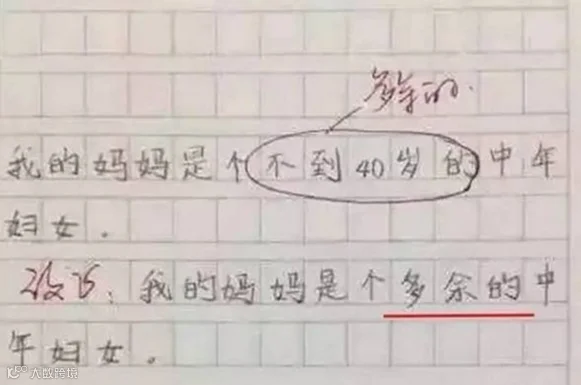 多余的.
我的妈妈是个不到40岁的中年
妇女.
改正:我的妈妈是个多余的中
年妇女.
大数跨境